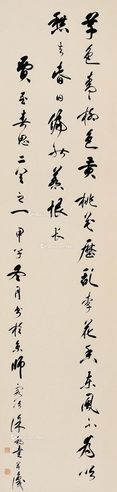 草色青々柳色黃桃花歷亂李花香東風不為吹
愁去春日偏能惹恨長
賈至春思二首之一 甲 冬月書於京師